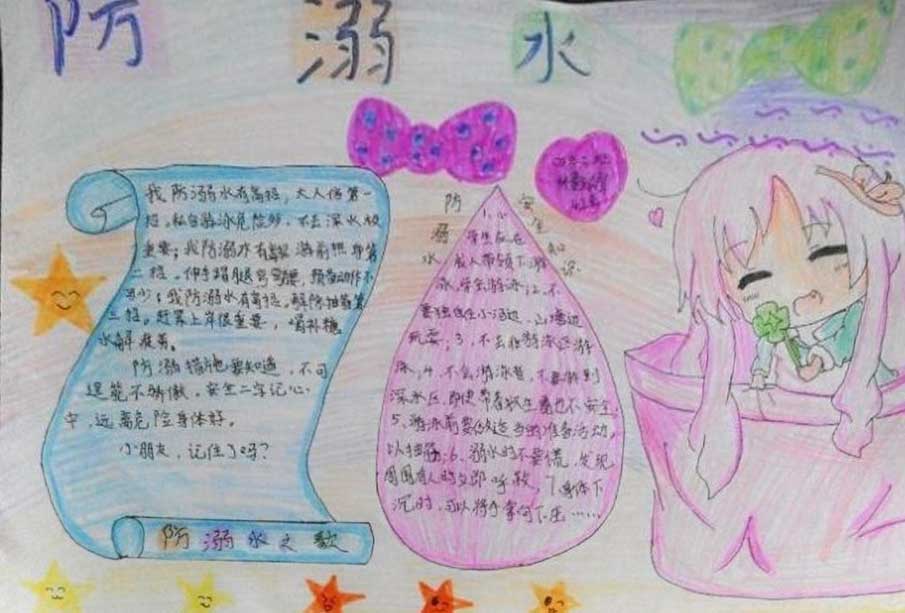 防 溺 水
我防溺水有高招,大人伴第一
招。私自游泳危险多,不去深水极
重要;我防溺水有高招,游前热身第
二招。伸手蹬腿弯弯腰,预备动作不
可少;我防溺水有高招,解除抽筋第
三招。赶紧上岸很重要,喝补糖
水解疲劳。
防溺措施要知道,不可
逞能不骄傲。安全二字记心
中,远离危险身体好。
小朋友,记住了吗?
防溺水之歌
防溺水
安全知识
1.小
学生应在
成人带领下游
泳,学生游泳;2.不
要独自在小河边、山塘边
玩耍;3.不去非游泳区游
泳;4.不会游泳者,不要游到
深水区,即使带着救生圈也不安全;
5.游泳前要做适当的准备活动,
以防抽筋;6.溺水时不要慌,发现
周围有人时立即呼救;7.身体下
沉时,可以将手掌向下压……